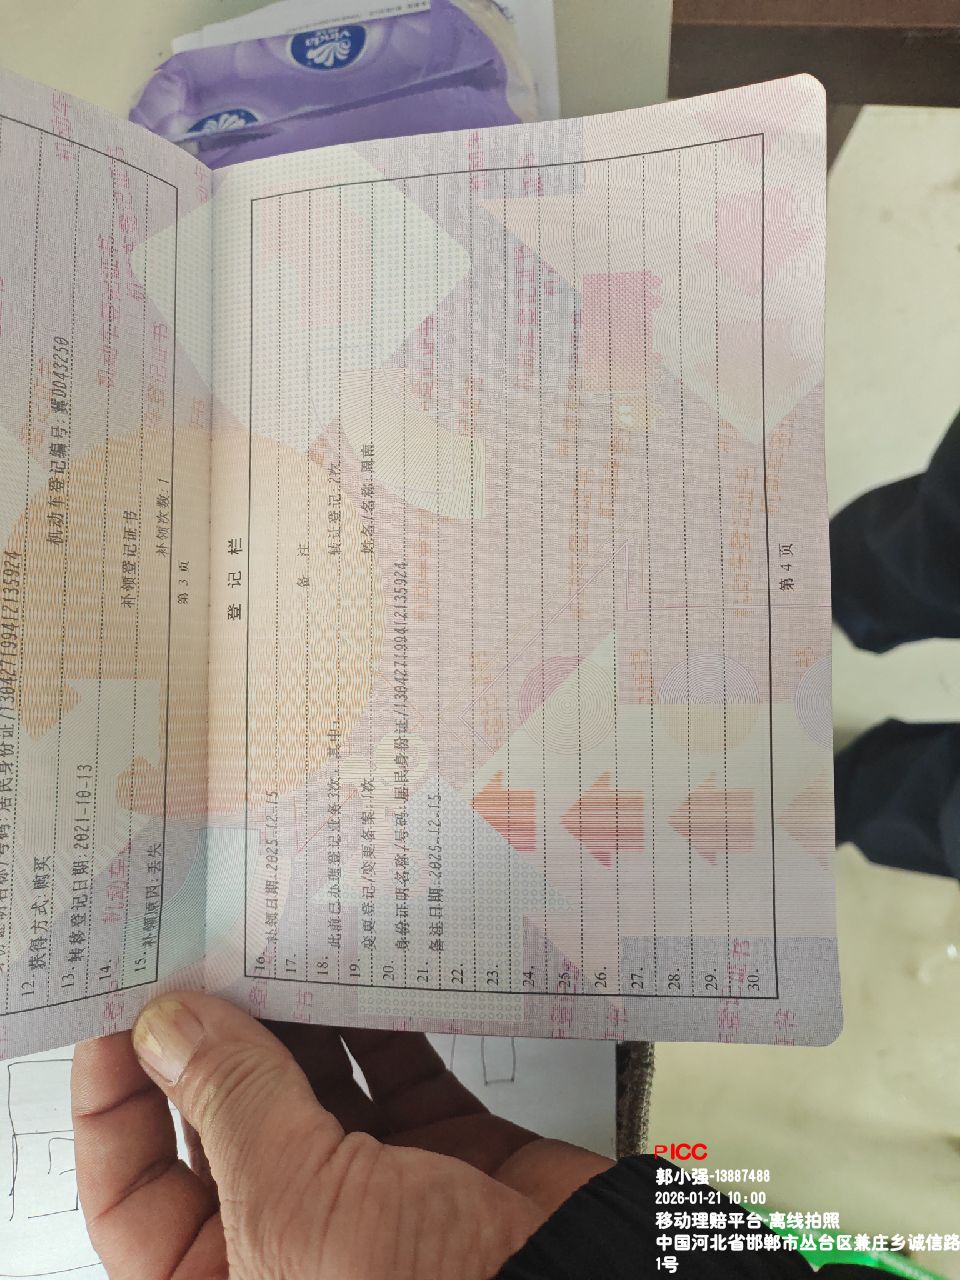 Vinda
身份证明名称/号码:居民身份证/130427199412135924
12. 获得方式:购买
机动车登记编号:冀DD43250
13. 转移登记日期:2021-10-13
14. 补领登记证书
15. 补领原因:丢失 补领次数:1
第 3 页
登 记 栏
16. 补领日期:2025-12-15
17. 备 注
18. 此前已办理登记业务3次，其中： 转让登记:2次
19. 变更登记/变更备案:1次 姓名/名称:周南
20. 身份证明名称/号码:居民身份证/130427199412135924
21. 备注日期:2025-12-15
22.
23.
24.
25.
26.
27.
28.
29.
30.
第 4 页
PICC
郭小强-13887488
2026-01-21 10:00
移动理赔平台-离线拍照
中国河北省邯郸市丛台区兼庄乡诚信路
1号